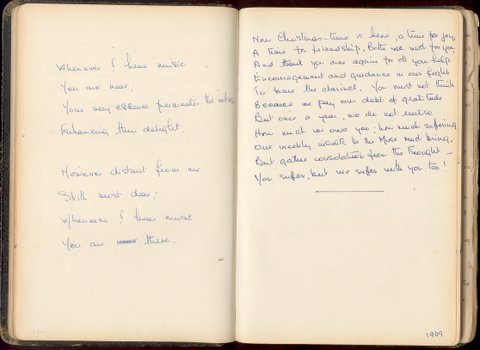 Whenever I hear music
You are near;
Your very essence permeates the notes
Enhancing their delight.
However distant from me
Still most dear;
Whenever I hear music
You are there.
Now Christmas-time is here, a time for joy,
A time for friendship. Both we wish for you,
And thank you once again for all your help
Encouragement and guidance in our fight
To tame the clarinet. You must not think
Because we pay our debt of gratitude
But once a year, we do not realise
How much we owe you; how much suffering
Our weekly visits to the Muse must bring.
But gather consolation from the thought —
You suffer, but we suffer with you too!
1969